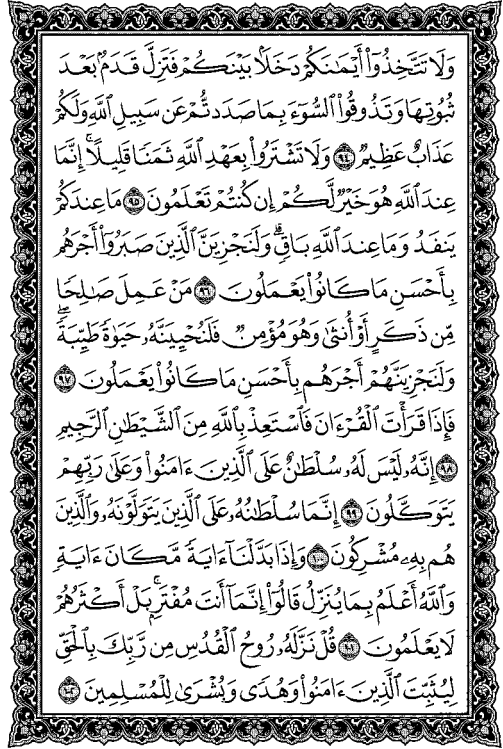 وَلَا تَتَّخِذُوٓا۟ أَيْمَٰنَكُمْ دَخَلًۢا بَيْنَكُمْ فَتَزِلَّ قَدَمٌۢ بَعْدَ
ثُبُوتِهَا وَتَذُوقُوا۟ ٱلسُّوٓءَ بِمَا صَدَدتُّمْ عَن سَبِيلِ ٱللَّهِ وَلَكُمْ
عَذَابٌ عَظِيمٌ ٩٤ وَلَا تَشْتَرُوا۟ بِعَهْدِ ٱللَّهِ ثَمَنًا قَلِيلًا ۚ إِنَّمَا
عِندَ ٱللَّهِ هُوَ خَيْرٌ لَّكُمْ إِن كُنتُمْ تَعْلَمُونَ ٩٥ مَا عِندَكُمْ
يَنفَدُ وَمَا عِندَ ٱللَّهِ بَاقٍ ۗ وَلَنَجْزِيَنَّ ٱلَّذِينَ صَبَرُوٓا۟ أَجْرَهُم
بِأَحْسَنِ مَا كَانُوا۟ يَعْمَلُونَ ٩٦ مَنْ عَمِلَ صَٰلِحًا
مِّن ذَكَرٍ أَوْ أُنثَىٰ وَهُوَ مُؤْمِنٌ فَلَنُحْيِيَنَّهُۥ حَيَوٰةً طَيِّبَةً ۖ
وَلَنَجْزِيَنَّهُمْ أَجْرَهُم بِأَحْسَنِ مَا كَانُوا۟ يَعْمَلُونَ ٩٧
فَإِذَا قَرَأْتَ ٱلْقُرْءَانَ فَٱسْتَعِذْ بِٱللَّهِ مِنَ ٱلشَّيْطَٰنِ ٱلرَّجِيمِ
٩٨ إِنَّهُۥ لَيْسَ لَهُۥ سُلْطَٰنٌ عَلَى ٱلَّذِينَ ءَامَنُوا۟ وَعَلَىٰ رَبِّهِمْ
يَتَوَكَّلُونَ ٩٩ إِنَّمَا سُلْطَٰنُهُۥ عَلَى ٱلَّذِينَ يَتَوَلَّوْنَهُۥ وَٱلَّذِينَ
هُم بِهِۦ مُشْرِكُونَ ١٠٠ وَإِذَا بَدَّلْنَآ ءَايَةً مَّكَانَ ءَايَةٍ
وَٱللَّهُ أَعْلَمُ بِمَا يُنَزِّلُ قَالُوٓا۟ إِنَّمَآ أَنتَ مُفْتَرٍۭ ۚ بَلْ أَكْثَرُهُمْ
لَا يَعْلَمُونَ ١٠١ قُلْ نَزَّلَهُۥ رُوحُ ٱلْقُدُسِ مِن رَّبِّكَ بِٱلْحَقِّ
لِيُثَبِّتَ ٱلَّذِينَ ءَامَنُوا۟ وَهُدًى وَبُشْرَىٰ لِلْمُسْلِمِينَ ١٠٢